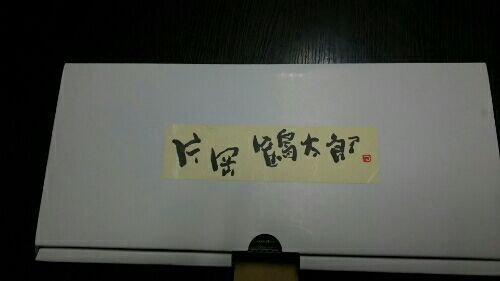 片岡鶴太郎